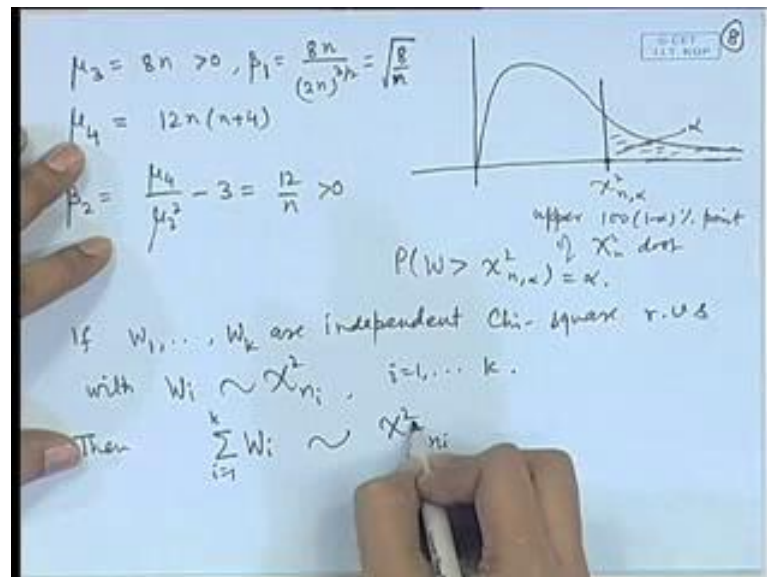 μ₃ = 8n >0, β₁ = 8n / (2n)^{3/2} = √(8/n)
μ₄ = 12n(n+4)
β₂ = μ₄ / μ₂² − 3 = 12/n >0
8
α
χ²ₙ,α
upper 100(1-α)% point
of χ²ₙ dist
P(W > χ²ₙ,α) = α.
If W₁, . . . , Wₖ are independent Chi-square r.v.s
with Wᵢ ~ χ²ₙᵢ, i=1, . . . k.
Then ∑ᵢ₌₁ᵏ Wᵢ ~ χ² nᵢ